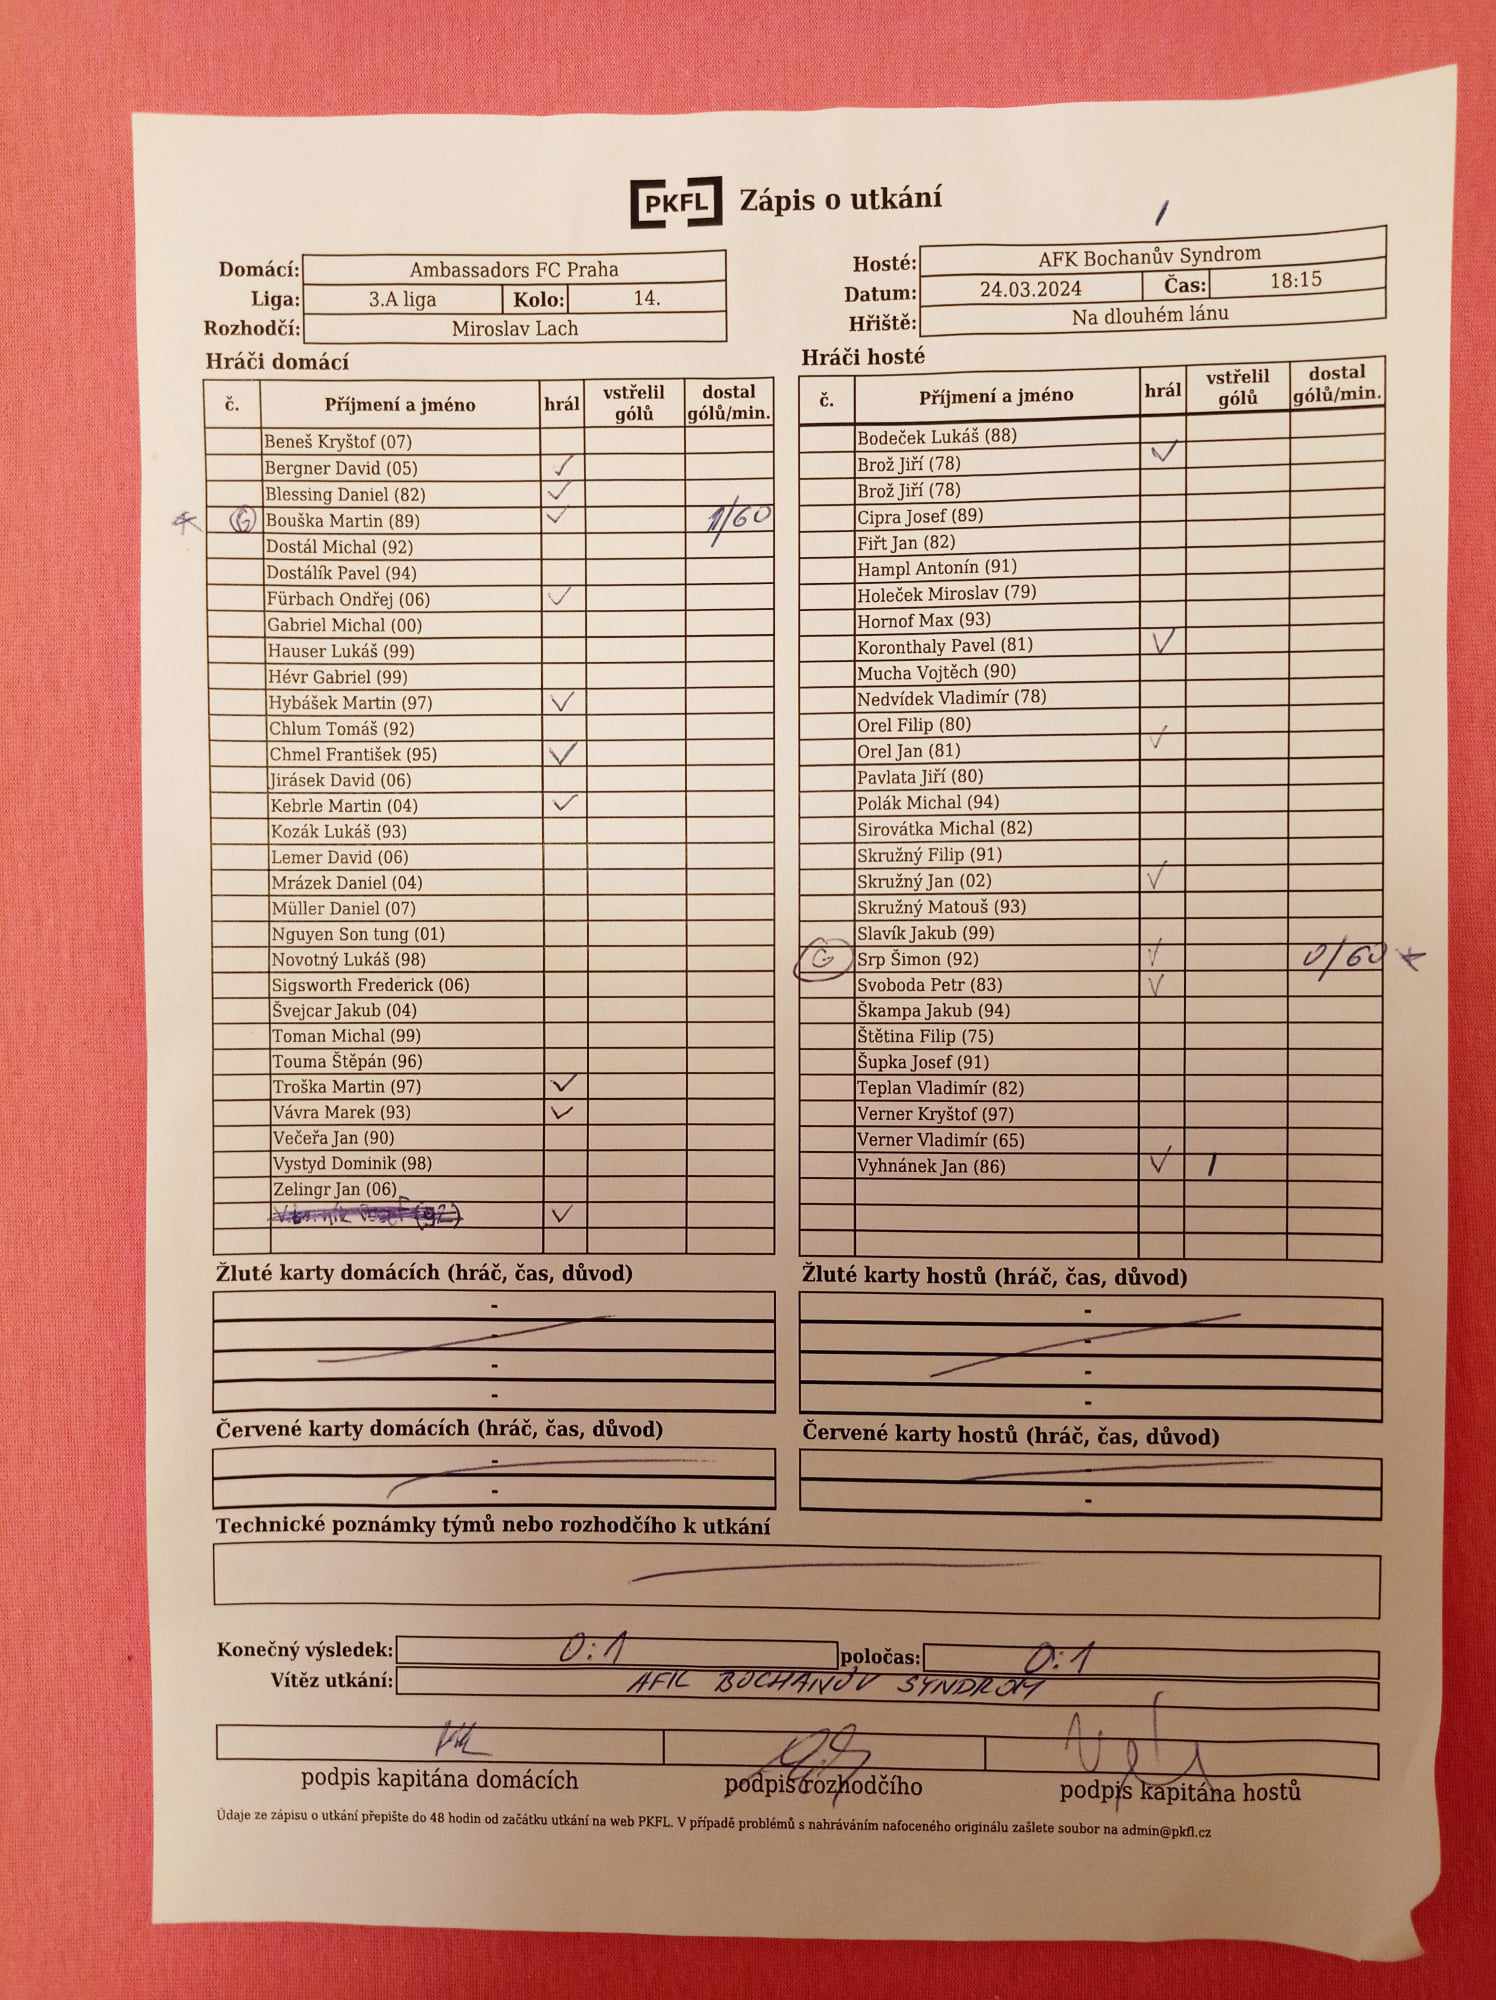 PKFL Zápis o utkání
Domácí: Ambassadors FC Praha
Liga: 3.A liga Kolo: 14.
Rozhodčí: Miroslav Lach
Hosté: AFK Bochanův Syndrom
Datum: 24.03.2024 Čas: 18:15
Hřiště: Na dlouhém lánu
Hráči domácí
č. Příjmení a jméno hrál vstřelil gólů dostal gólů/min.
Beneš Kryštof (07)
Bergner David (05) ✓
Blessing Daniel (82) ✓
G Bouška Martin (89) ✓ 1/60
Dostál Michal (92)
Dostálík Pavel (94)
Fürbach Ondřej (06) ✓
Gabriel Michal (00)
Hauser Lukáš (99)
Hévr Gabriel (99)
Hybášek Martin (97) ✓
Chlum Tomáš (92)
Chmel František (95) ✓
Jirásek David (06)
Kebrle Martin (04) ✓
Kozák Lukáš (93)
Lemer David (06)
Mrázek Daniel (04)
Müller Daniel (07)
Nguyen Son tung (01)
Novotný Lukáš (98)
Sigsworth Frederick (06)
Švejcar Jakub (04)
Toman Michal (99)
Touma Štěpán (96)
Troška Martin (97) ✓
Vávra Marek (93) ✓
Večeřa Jan (90)
Vystyd Dominik (98)
Zelingr Jan (06)
(92) ✓
Hráči hosté
č. Příjmení a jméno hrál vstřelil gólů dostal gólů/min.
Bodeček Lukáš (88)
Brož Jiří (78) ✓
Brož Jiří (78)
Cipra Josef (89)
Fiřt Jan (82)
Hampl Antonín (91)
Holeček Miroslav (79)
Hornof Max (93)
Koronthaly Pavel (81) ✓
Mucha Vojtěch (90)
Nedvídek Vladimír (78)
Orel Filip (80)
Orel Jan (81) ✓
Pavlata Jiří (80)
Polák Michal (94)
Sirovátka Michal (82)
Skružný Filip (91)
Skružný Jan (02) ✓
Skružný Matouš (93)
Slavík Jakub (99)
G Srp Šimon (92) ✓ 0/60
Svoboda Petr (83) ✓
Škampa Jakub (94)
Štětina Filip (75)
Šupka Josef (91)
Teplan Vladimír (82)
Verner Kryštof (97)
Verner Vladimír (65)
Vyhnánek Jan (86) ✓ 1
Žluté karty domácích (hráč, čas, důvod)
-
-
-
-
Žluté karty hostů (hráč, čas, důvod)
-
-
-
-
Červené karty domácích (hráč, čas, důvod)
-
-
Červené karty hostů (hráč, čas, důvod)
-
-
Technické poznámky týmů nebo rozhodčího k utkání
Konečný výsledek: 0:1 poločas: 0:1
Vítěz utkání: AFK BOCHANŮV SYNDROM
podpis kapitána domácích podpis rozhodčího podpis kapitána hostů
Údaje ze zápisu o utkání přepište do 48 hodin od začátku utkání na web PKFL. V případě problémů s nahráváním nafoceného originálu zašlete soubor na admin@pkfl.cz